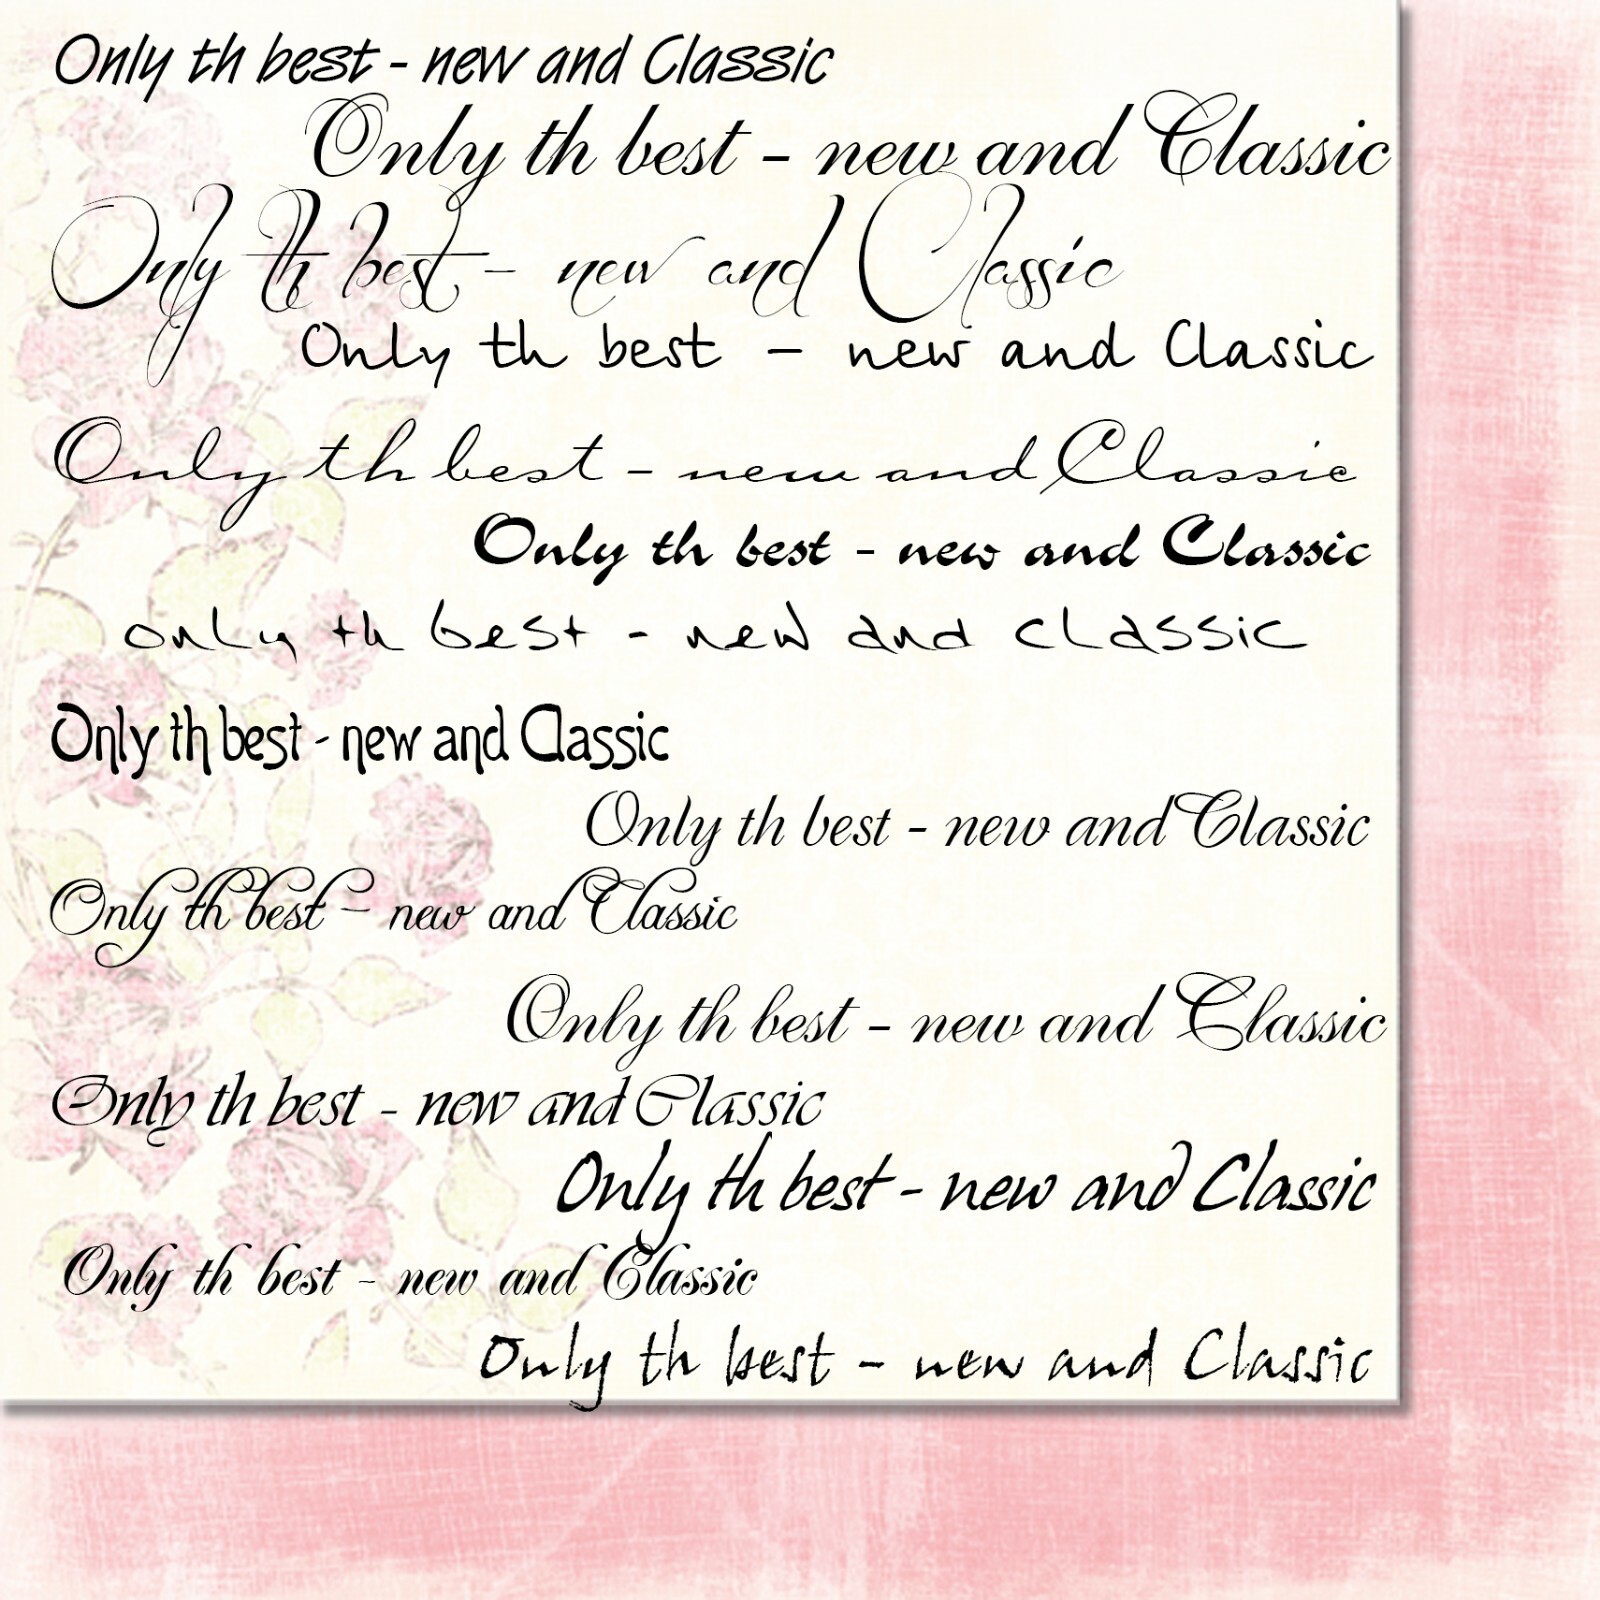 Only th best - new and Classic
Only th best - new and Classic
Only th best - new and Classic
Only th best - new and Classic
Only th best - new and Classic
Only th best - new and Classic
only th best - new and classic
Only th best - new and Classic
Only th best - new and Classic
Only th best - new and Classic
Only th best - new and Classic
Only th best - new and Classic
Only th best - new and Classic
Only th best - new and Classic
Only th best - new and Classic